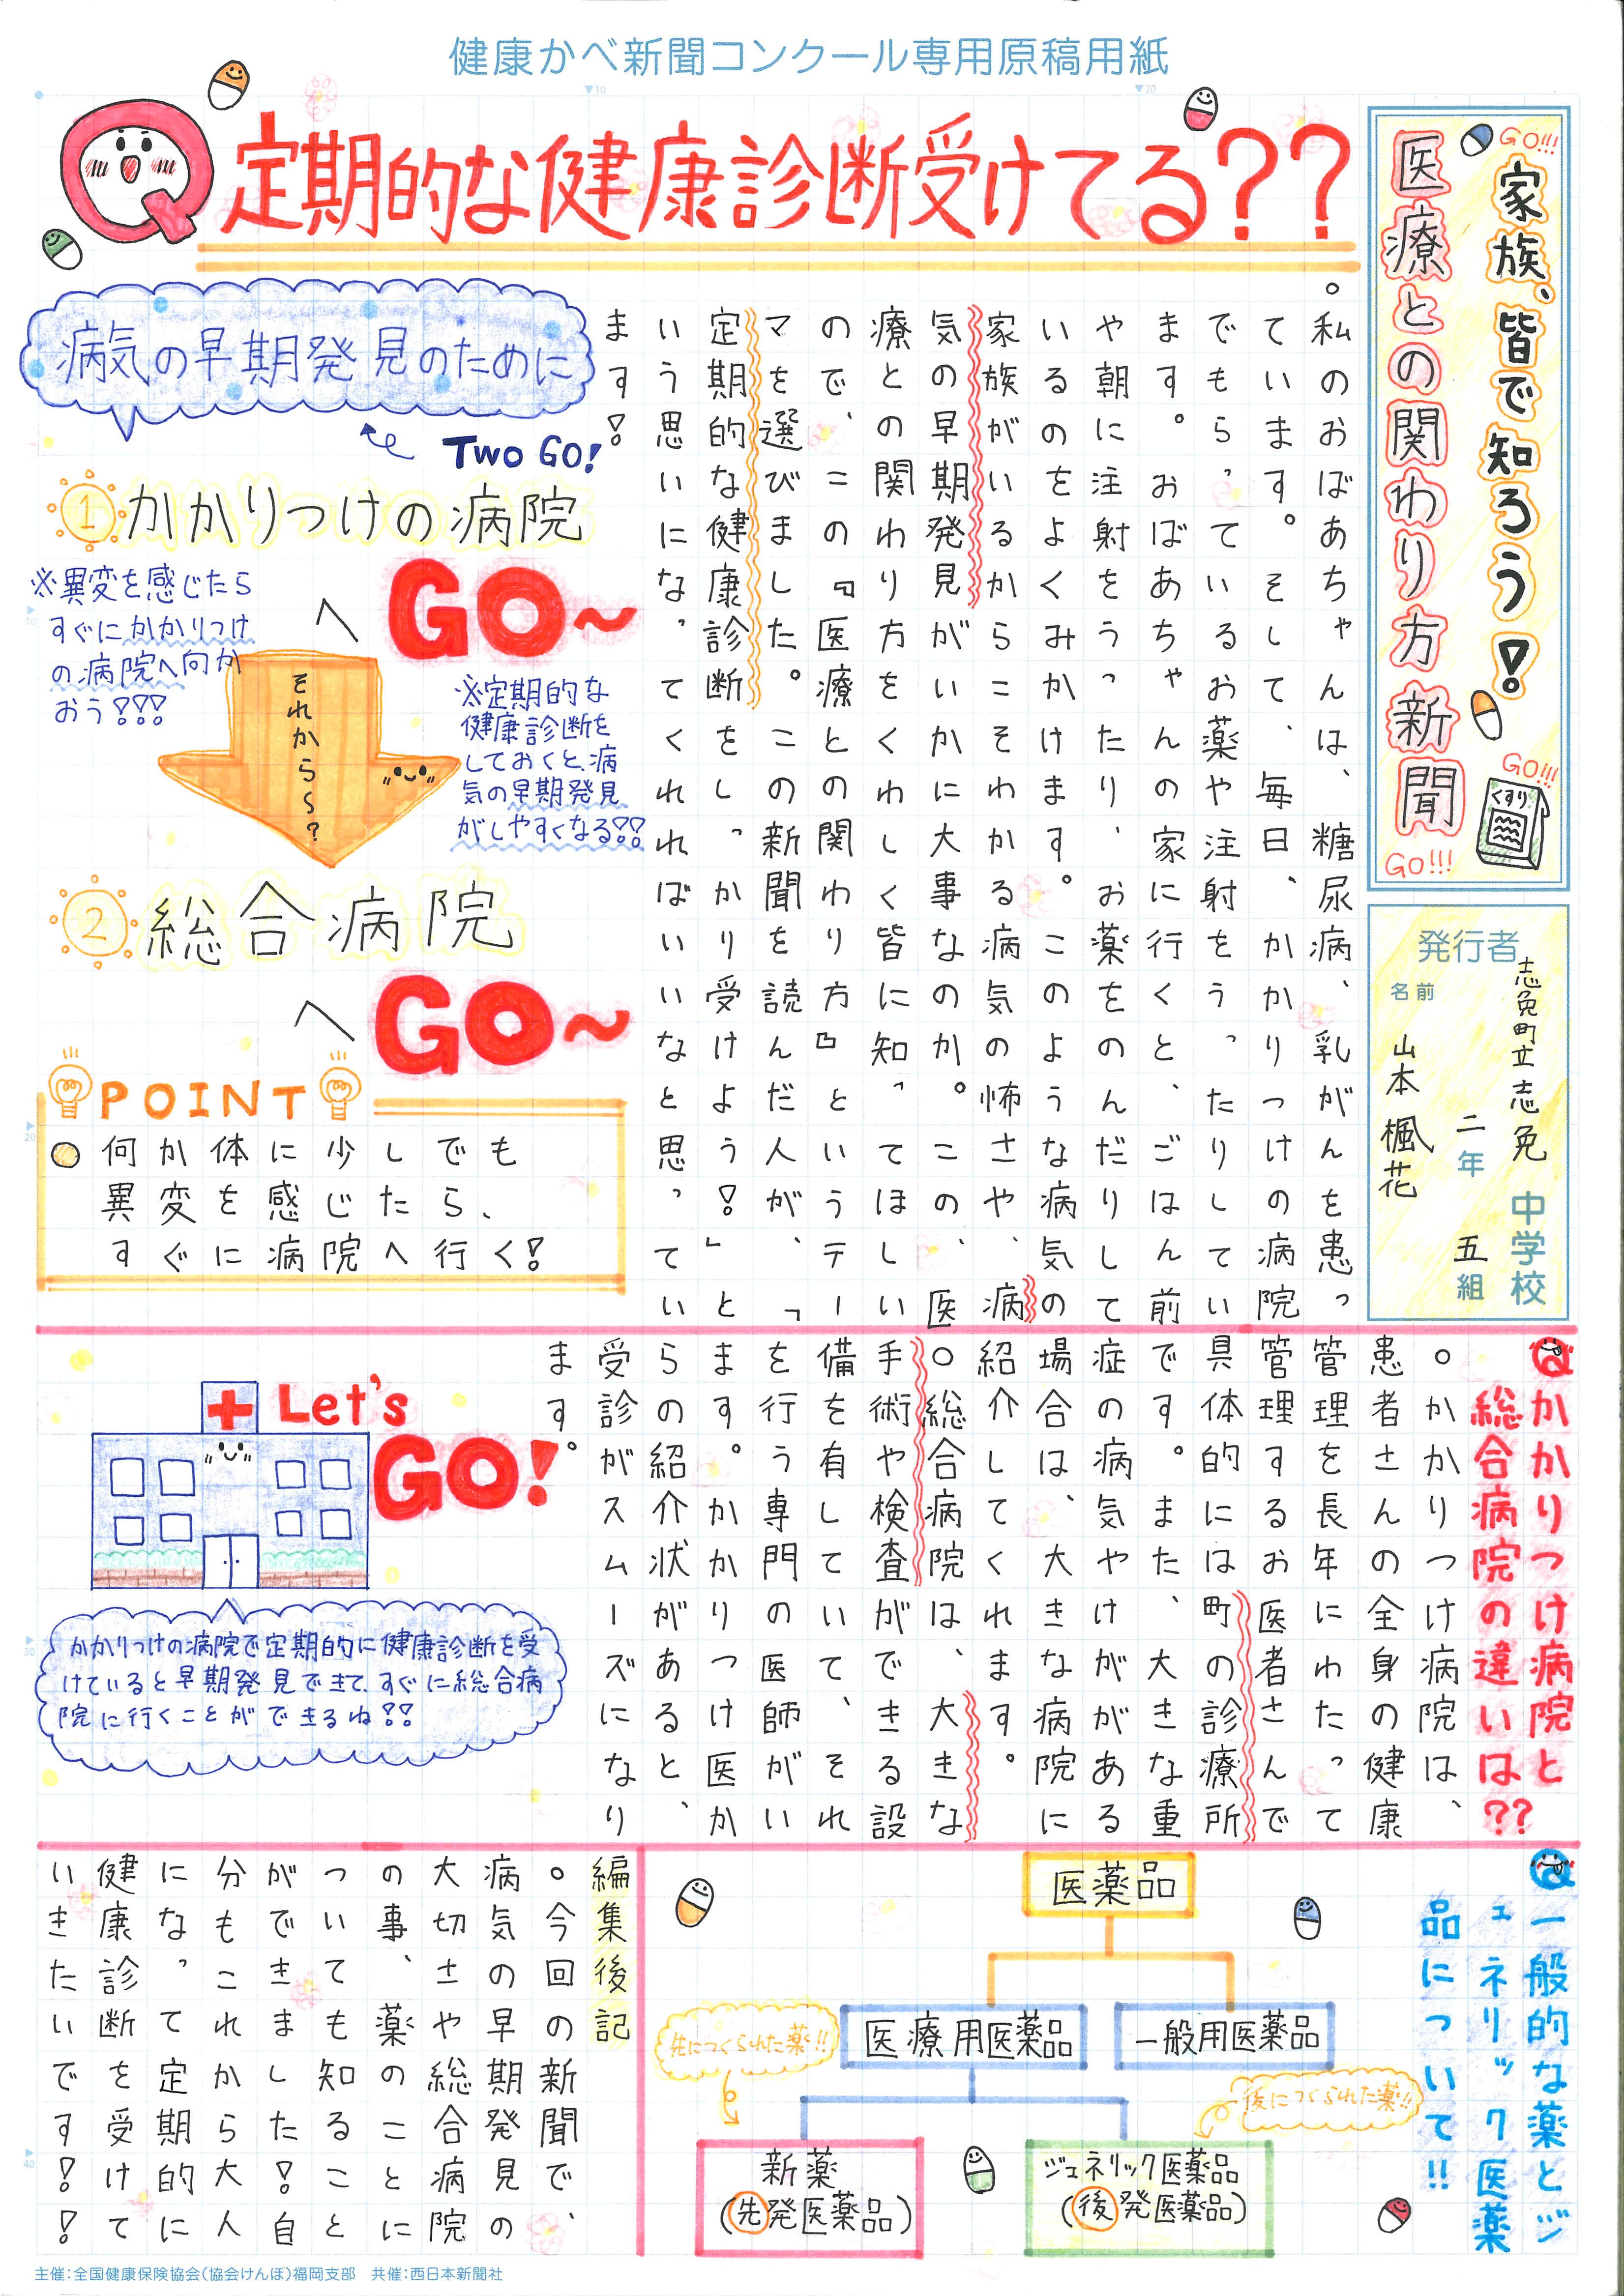 健康かべ新聞コンクール専用原稿用紙
10
20
GO!!!
家族、皆で知ろう!
医療との関わり方新聞
GO!!!
くすり
GO!!!
発行者
志免町立志免中学校
二年五組
名前
山本楓花
Q定期的な健康診断受けてる??
。私のおばあちゃんは、糖尿病、乳がんを患っ
ています。そして、毎日、かかりつけの病院
でもらっているお薬や注射をうったりしてい
ます。おばあちゃんの家に行くと、ごはん前
や朝に注射をうったり、お薬をのんだりして
いるのをよくみかけます。このような病気の
家族がいるからこそわかる病気の怖さや、病
気の早期発見がいかに大事なのか。この、医
療との関わり方をくわしく皆に知ってほしい
ので、この『医療との関わり方』というテー
マを選びました。この新聞を読んだ人が、「
定期的な健康診断をしっかり受けよう!」と
いう思いになってくれればいいなと思ってい
ます!
病気の早期発見のために
Two GO!
1かかりつけの病院
へGO~
※異変を感じたら
すぐにかかりつけ
の病院へ向か
おう!!!
それから~?
※定期的な
健康診断を
しておくと、病
気の早期発見
がしやすくなる!!
2総合病院
へGO~
POINT
何か体に少しでも
異変を感じたら、
すぐに病院へ行く!
Qかかりつけ病院と
総合病院の違いは??
。かかりつけ病院は、
患者さんの全身の健康
管理を長年にわたって
管理するお医者さんで
具体的には町の診療所
です。また、大きな重
症の病気やけががある
場合は、大きな病院に
紹介してくれます。
。総合病院は、大きな
手術や検査ができる設
備を有していて、それ
を行う専門の医師がい
ます。かかりつけ医か
らの紹介状があると、
受診がスムーズになり
ます。
Let's
GO!
かかりつけの病院で定期的に健康診断を受
けていると早期発見できて、すぐに総合病
院に行くことができるね!!
Q一般的な薬とジ
ェネリック医薬
品について!!
医薬品
医療用医薬品
一般用医薬品
先につくられた薬!!
後につくられた薬!!
新薬
(先発医薬品)
ジェネリック医薬品
(後発医薬品)
編集後記
。今回の新聞で、
病気の早期発見の
大切さや総合病院
の事、薬のことに
ついても知ること
ができました!自
分もこれから大人
になって定期的に
健康診断を受けて
いきたいです!!
10
20
30
40
主催:全国健康保険協会(協会けんぽ)福岡支部 共催:西日本新聞社